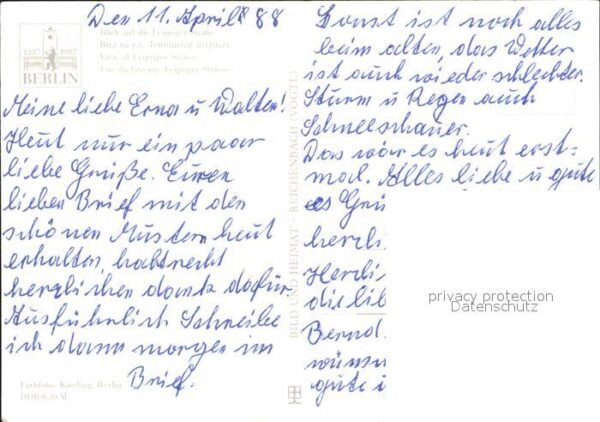 Den 11. April 88
1237 1987
BERLIN
Blick auf die Leipziger Straße
View of Leipziger Strasse
Vue du Leipziger Strasse
Meine liebe Erna u Walter!
Heut nur ein paar
liebe Grüße. Euren
lieben Brief mit den
schönen Mustern heut
erhalten, habt recht
herzlichen dank dafür
Ausführlich Schreibe
ich dann morgen im
Brief.
Farbfoto: Kiesling, Berlin
DDR 0,20 M
BILD UND HEIMAT · REICHENBACH (VOGTL)
Sonst ist noch alles
beim alten, das Wetter
ist auch wieder schlechter.
Sturm u Regen auch
Schneeschauer.
Das wär es heut erst=
mal. Alles liebe u gute
es Grü
herzli
Herzli
die lie
Bernd.
wünsc
gute i
privacy protection
Datenschutz